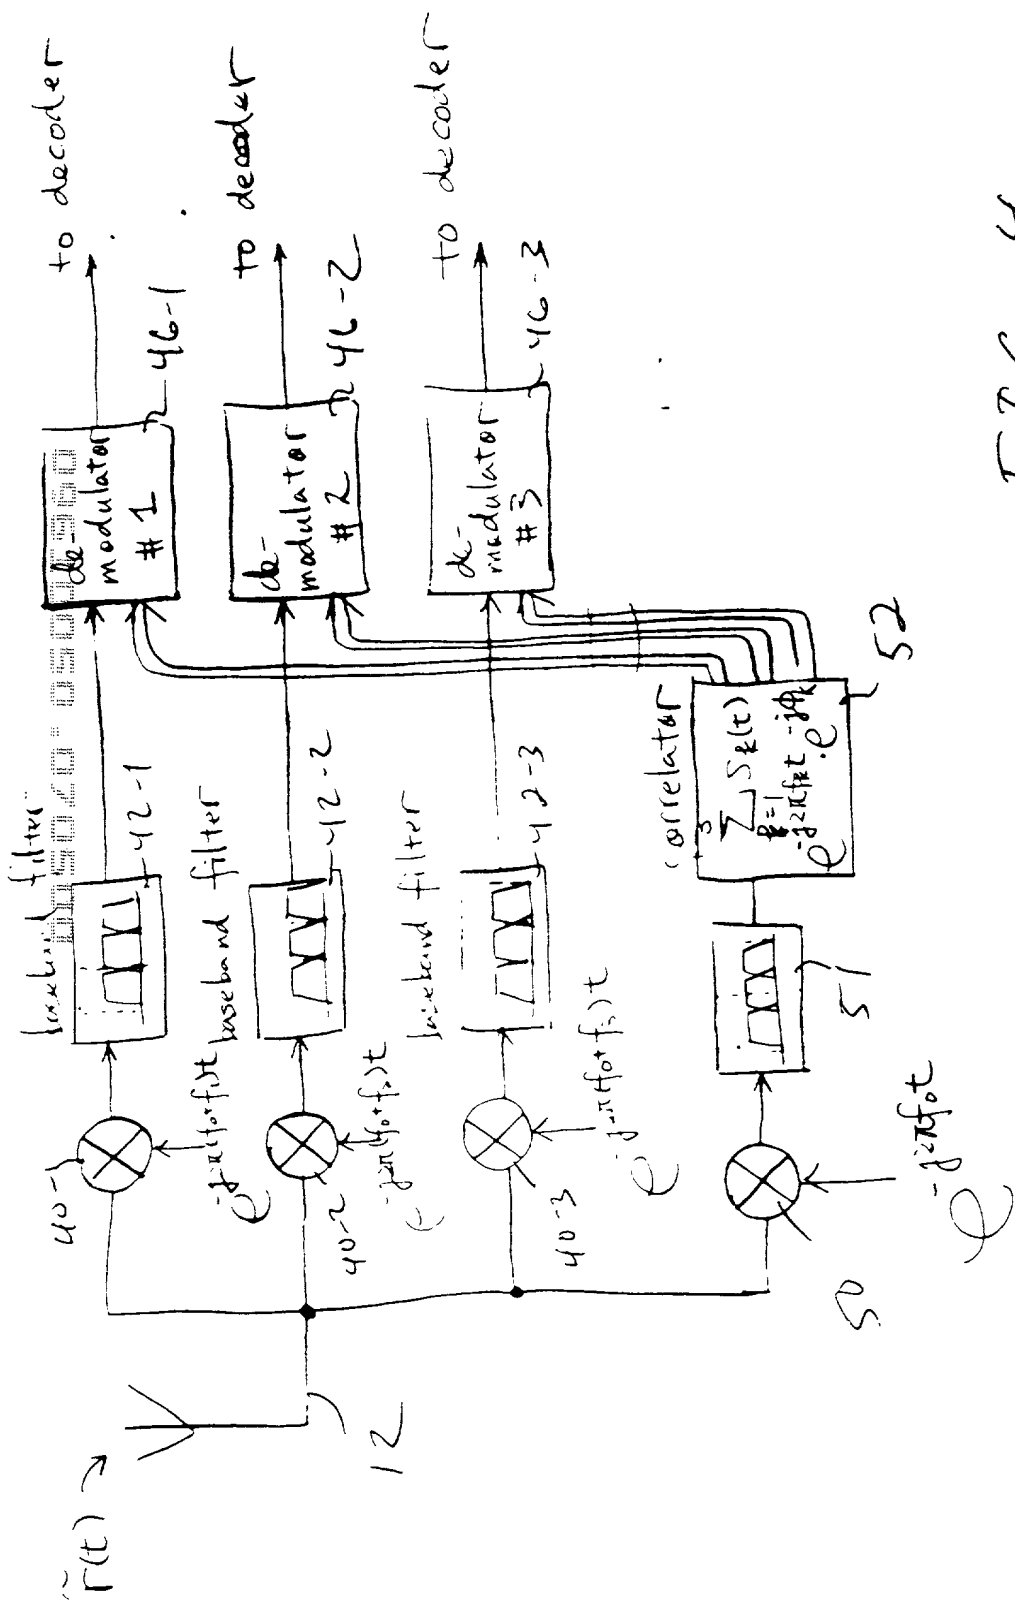 r̃(t)
12
40-1
e^-j2π(f₀+f₁)t
baseband filter
42-1
de-
modulator
# 1
46-1
to decoder
40-2
e^-j2π(f₀+f₂)t
baseband filter
42-2
de-
modulator
# 2
46-2
to decoder
40-3
e^-j2π(f₀+f₃)t
baseband filter
42-3
de-
modulator
# 3
46-3
to decoder
50
e^-j2πf₀t
51
correlator
3
Σ Sₖ(t)
k=1
e^-j2πfₖt · e^-jϕₖ
52
FIG. 4